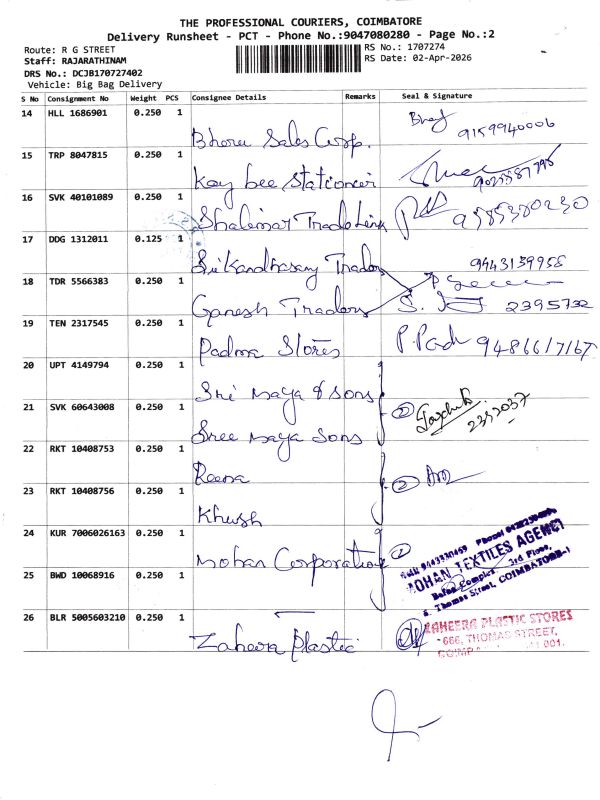 THE PROFESSIONAL COURIERS, COIMBATORE
Delivery Runsheet - PCT - Phone No.:9047080280 - Page No.:2
Route: R G STREET
RS No.: 1707274
Staff: RAJARATHINAM
RS Date: 02-Apr-2026
DRS No.: DCJB170727402
Vehicle: Big Bag Delivery
S No Consignment No Weight PCS Consignee Details Remarks Seal & Signature
14 HLL 1686901 0.250 1 Bhora Sales Corp. 9159940006
15 TRP 8047815 0.250 1 Kay bee Stationeri
16 SVK 40101089 0.250 1 Shalimar Trade Link 9585380230
17 DDG 1312011 0.125 1 Sri Kandhasamy Traders 9443139958
18 TDR 5566383 0.250 1 Ganesh Traders 2395732
19 TEN 2317545 0.250 1 Padma Stores P. Pad 9486617167
20 UPT 4149794 0.250 1 Sri Maya & Sons
21 SVK 60643008 0.250 1 Sree Maya Sons 2 2392037
22 RKT 10408753 0.250 1 Reena
23 RKT 10408756 0.250 1 Khush 2
24 KUR 7006026163 0.250 1 Mohan Corporation
25 BWD 10068916 0.250 1
MOHAN TEXTILES AGENCY
3rd Floor,
Thomas Street, COIMBATORE-1
26 BLR 5005603210 0.250 1 Zaheera Plastic
ZAHEERA PLASTIC STORES
666, THOMAS STREET,